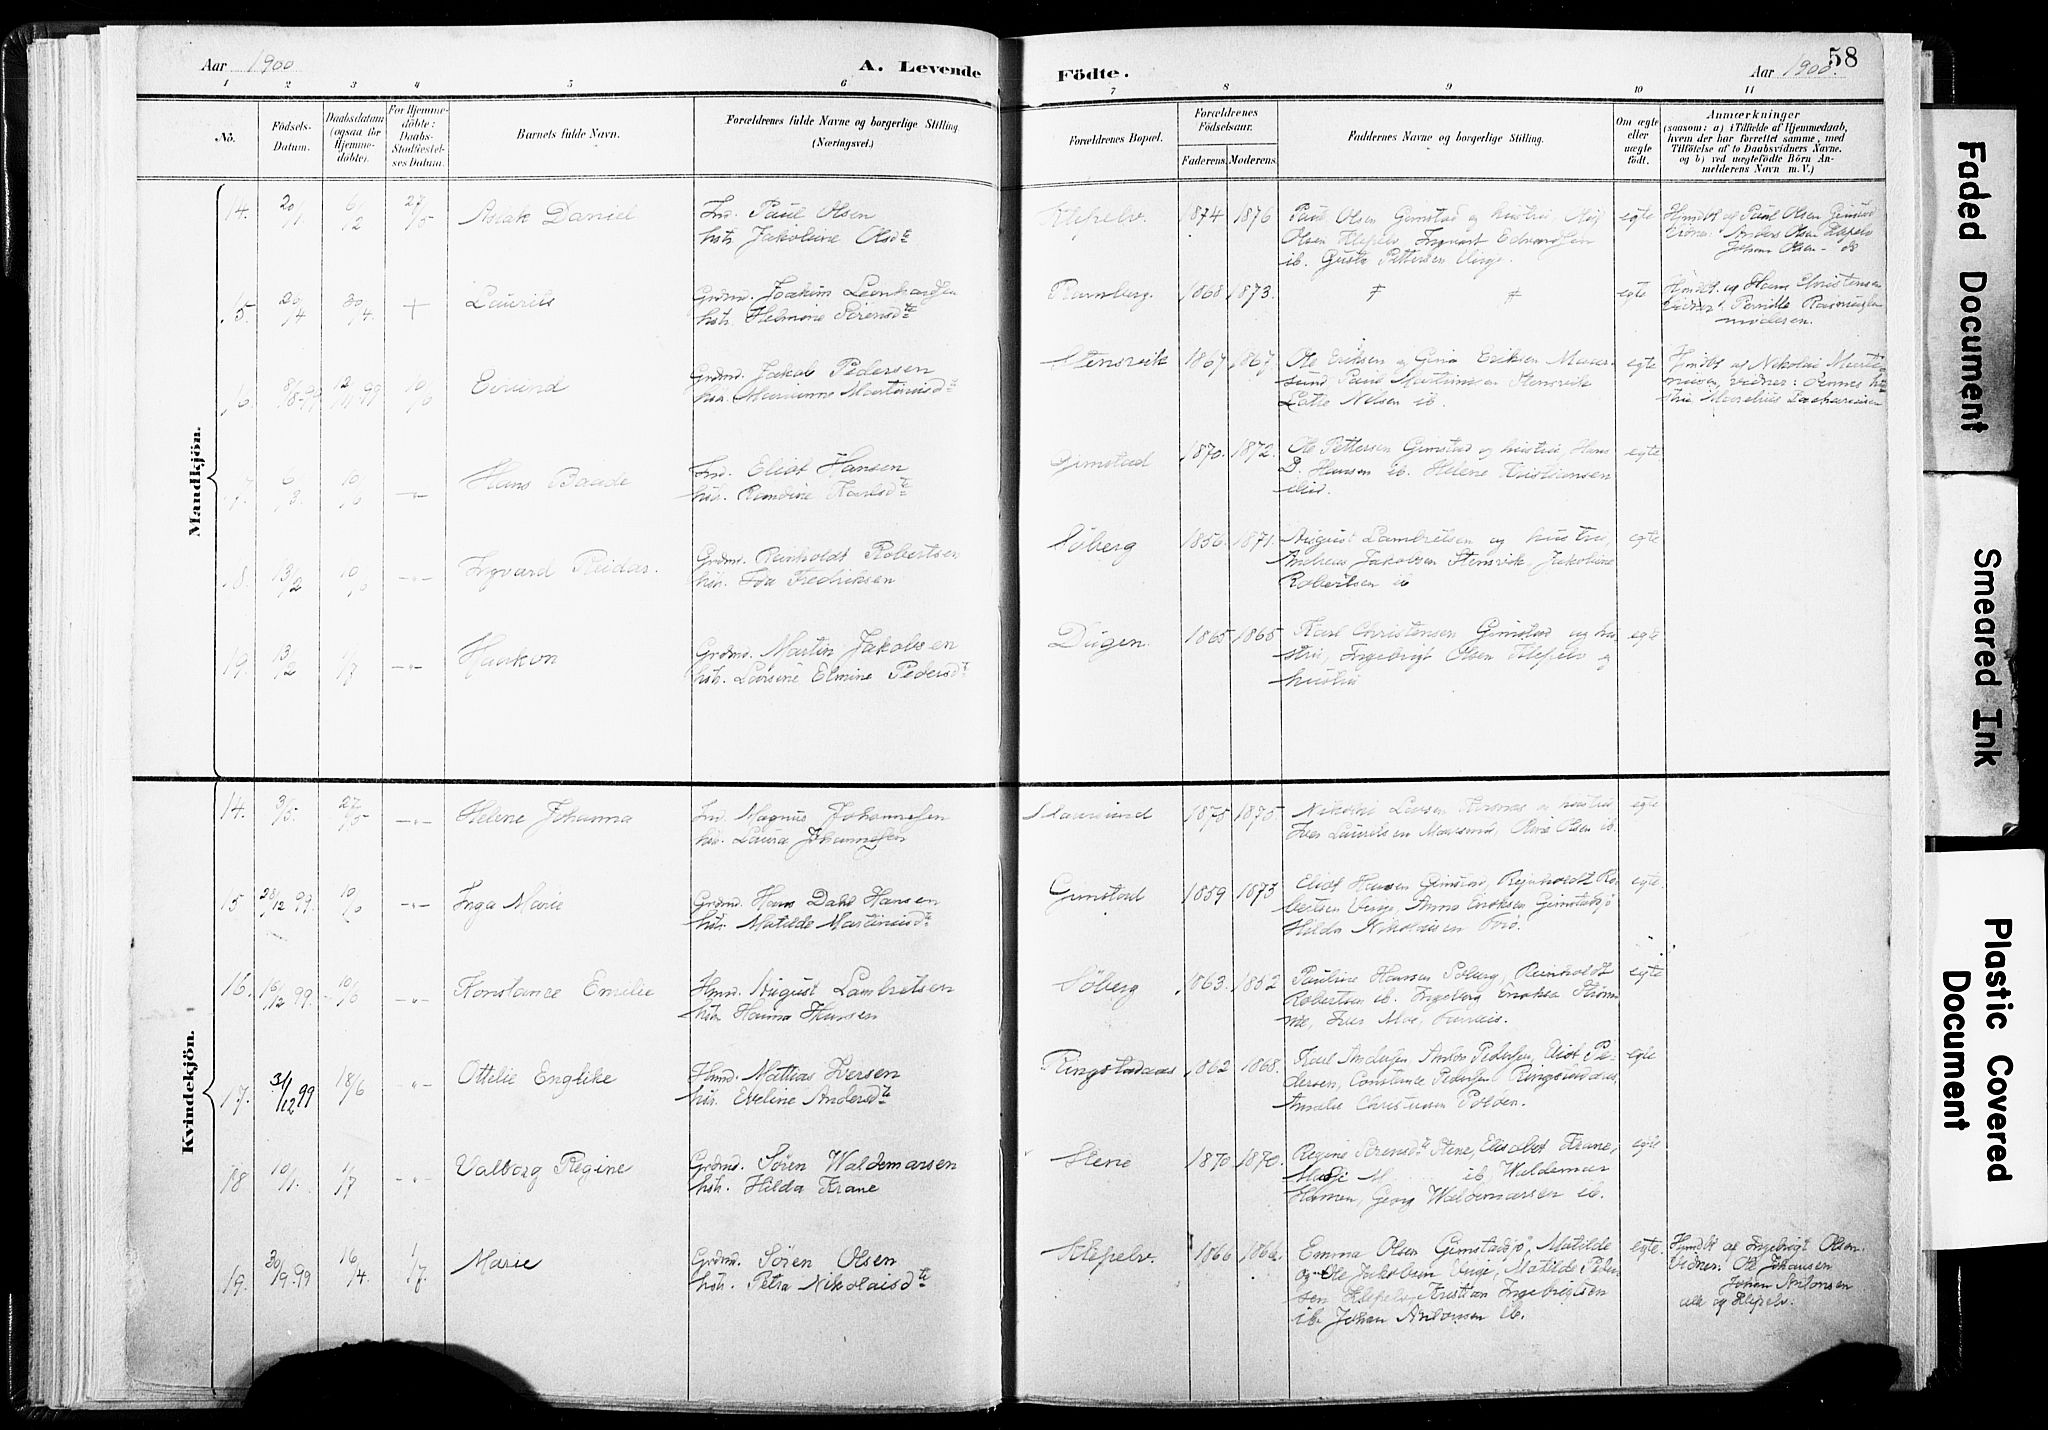 Aar 1900
A. Levende Födte.
Aar 1900.
58
1 2 3 4 5 6 7 8 9 10 11
No.
Födsels-Datum.
Daabsdatum (ogsaa for Hjemmedöbte).
For Hjemmedöbte: Daabs-Stadfæstelses Datum.
Barnets fulde Navn.
Forældrenes fulde Navne og borgerlige Stilling. (Næringsvei.)
Forældrenes Bopæl.
Forældrenes Födselsaar.
Faderens. Moderens.
Faddernes Navne og borgerlige Stilling.
Om ægte eller uægte födt.
Anmærkninger
(saasom: a) i Tilfælde af Hjemmedaab,
hvem der har forrettet samme, med
Tilföielse af to Daabsvidners Navne.
og b) ved uægtefödte Börn An-
melderens Navn m. V.)
Mandkjön.
14. 20/1 6/2 27/5 Aslak Daniel
Ind. Paul Olsen
hstr. Jakoline Olsdt
Klepelv. 1874 1876
Paul Olsen Gimstad og hustru
Olsen Klepelv, Ingvart Edvardsen
ib. Gusta Pettersen Vinje.
egte
Hjmdbt af Paul Olsen Gimstad
Vidner: Anders Olsen Klepelv
Johan Olsen - do
15. 20/4 30/4. + Laurits
Grdmd. Joakim Leonhardsen
hstr. Helmine Sörensdt
Ramberg. 1868 1873.
egte
Hmdbt. af Hans Christensen
Vidner: Pernille Rasmussen
moderen.
16 8/8.99 12/11 99 10/6 Eivind
Grdmd. Jakob Pedersen
hstr. Marianne Martinusdt
Stensvik 1867 1867
Ole Eriksen og Gina Eriksen
Paul Martinussen Stensvik
Nelsen ib.
egte
Hmdbt af Nikolai Marti-
nussen, vidner: dennes hu-
stru Marelius Zachariasen
17. 6/3 10/6 -"- Hans Baade
Ind. Eliot Hansen
hstr. Randine Karlsdt
Gimstad 1870. 1872.
Ole Pettersen Gimstad og hustru, Hans
D. Hansen ib. Helene Kristiansen
egte
18. 13/2 10/6 -"- Ingvard Reidar.
Grdmd. Reinholdt Robertsen
hstr. Ida Fredriksen
Söberg 1856. 1871.
August Lambretsen og hustru,
Andreas Jakobsen Stensvik, Jakoline
Robertsen ib
egte
19. 13/2 1/7 -"- Haakon
Grdmd. Martin Jakobsen
hstr. Larsine Elmine Pedersdt
Dugen. 1865 1865
Karl Christensen Gimstad og hu-
stru, Ingebrigt Olsen Klepelv og
hustru
egte
Kvindekjön.
14. 3/5. 27/5 -"- Helene Johanna
Ind. Magnus Johannesen
hstr. Laura Johannesen
1875 1875.
Nikolai Larsen og hustru
Iver Lauritsen Maursund, Olsen ib.
egte
15 28/12 99. 10/6 -"- Inga Marie
Grdmd. Hans Dahl Hansen
hstr. Matilde Martinusdt
Gimstad 1859 1873
Eliot Hansen Gimstad, Reinholdt Ro-
bertsen Vinje, Anna Eriksen Gimstadsjö
Hilda Nikolaisen
egte.
16. 16/12 99. 10/6 -"- Konstance Emilie
Hmd. August Lambretsen
hstr. Hanna Hansen
Söberg 1863. 1852
Pauline Hansen Söberg, Reinholdt
Robertsen ib. Ingeborg
Iver Moe
egte
17. 3/12 99 18/6 -"- Ottelie Englike
Hmd. Mathias Iversen
hstr. Eveline Andersdt
Ringstadaas 1862 1868.
Karl Andersen, Anton Pedersen, Eliot Pe-
dersen, Constance Pedersen Ringstadaas,
Amalie Christensen Polden.
egte
18 10/1. 1/7 -"- Valborg Regine
Grdmd. Sören Waldemarsen
hstr. Hilda Krane
Stene 1870 1870.
Regine Sörensdt Stene, Elisabet Krane,
M ib. Waldemar
Hansen, Georg Waldemarsen ib.
egte
19. 30/9.99 16/4. 1/7. Marie
Grdmd. Sören Olsen
hstr. Petra Nikolaisdt
Klepelv. 1866 1866.
Emma Olsen Gimstadsjö, Matilde
og Ole Jakobsen Vinje, Matilde Peder-
sen Klepelv, Kristian Ingebrigtsen
ib. Johan Antonsen ib.
egte.
Hjmdbt af Ingebrigt Olsen.
Vidner: Ole Johansen
Johan Antonsen
alle af Klepelv.
Faded Document
Smeared Ink
Plastic Covered Document